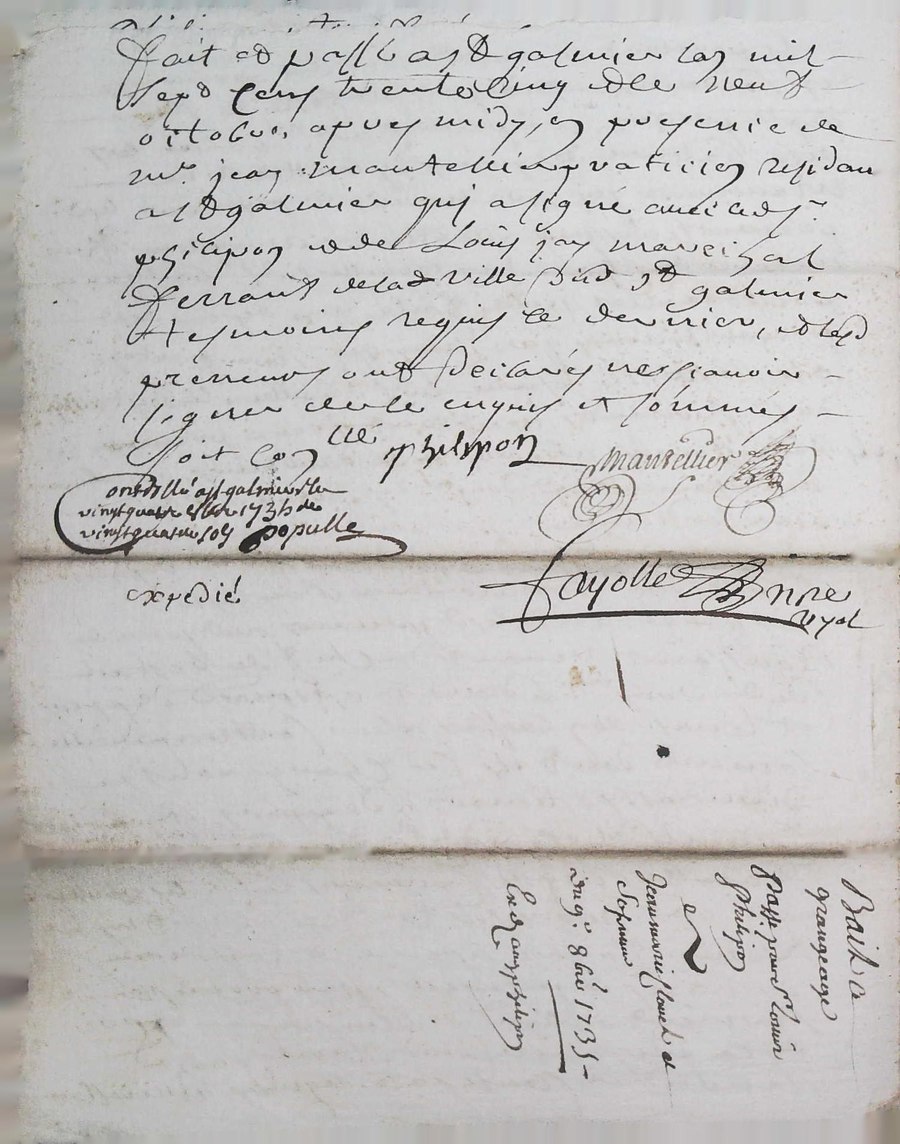 fait et passé a st galmier lan mil
sept cens trente cinq et le neuf
octobre apres midy, en presence de
mr. jean mantellier praticien residan
a st galmier qui a signé avec led. sr.
philipon et de Louis jay mareichal
ferrant de lad ville dud st galmier
tesmoins requis ce dernier, et lesd
preneurs ont declarés ne sçavoir
signer de ce enquis et sommés
soit con llé philipon
mantellier
controllé a st galmier le
vingt quatre 8bre 1735 Rc
vingt quatre sols populle
expedié
fayolle nre
royal
Bail a
grangeage
Passé par sr Louis
Philipon
a
Jean marie clavel et
sa femme
du 9e. 8bre 1735
philipon